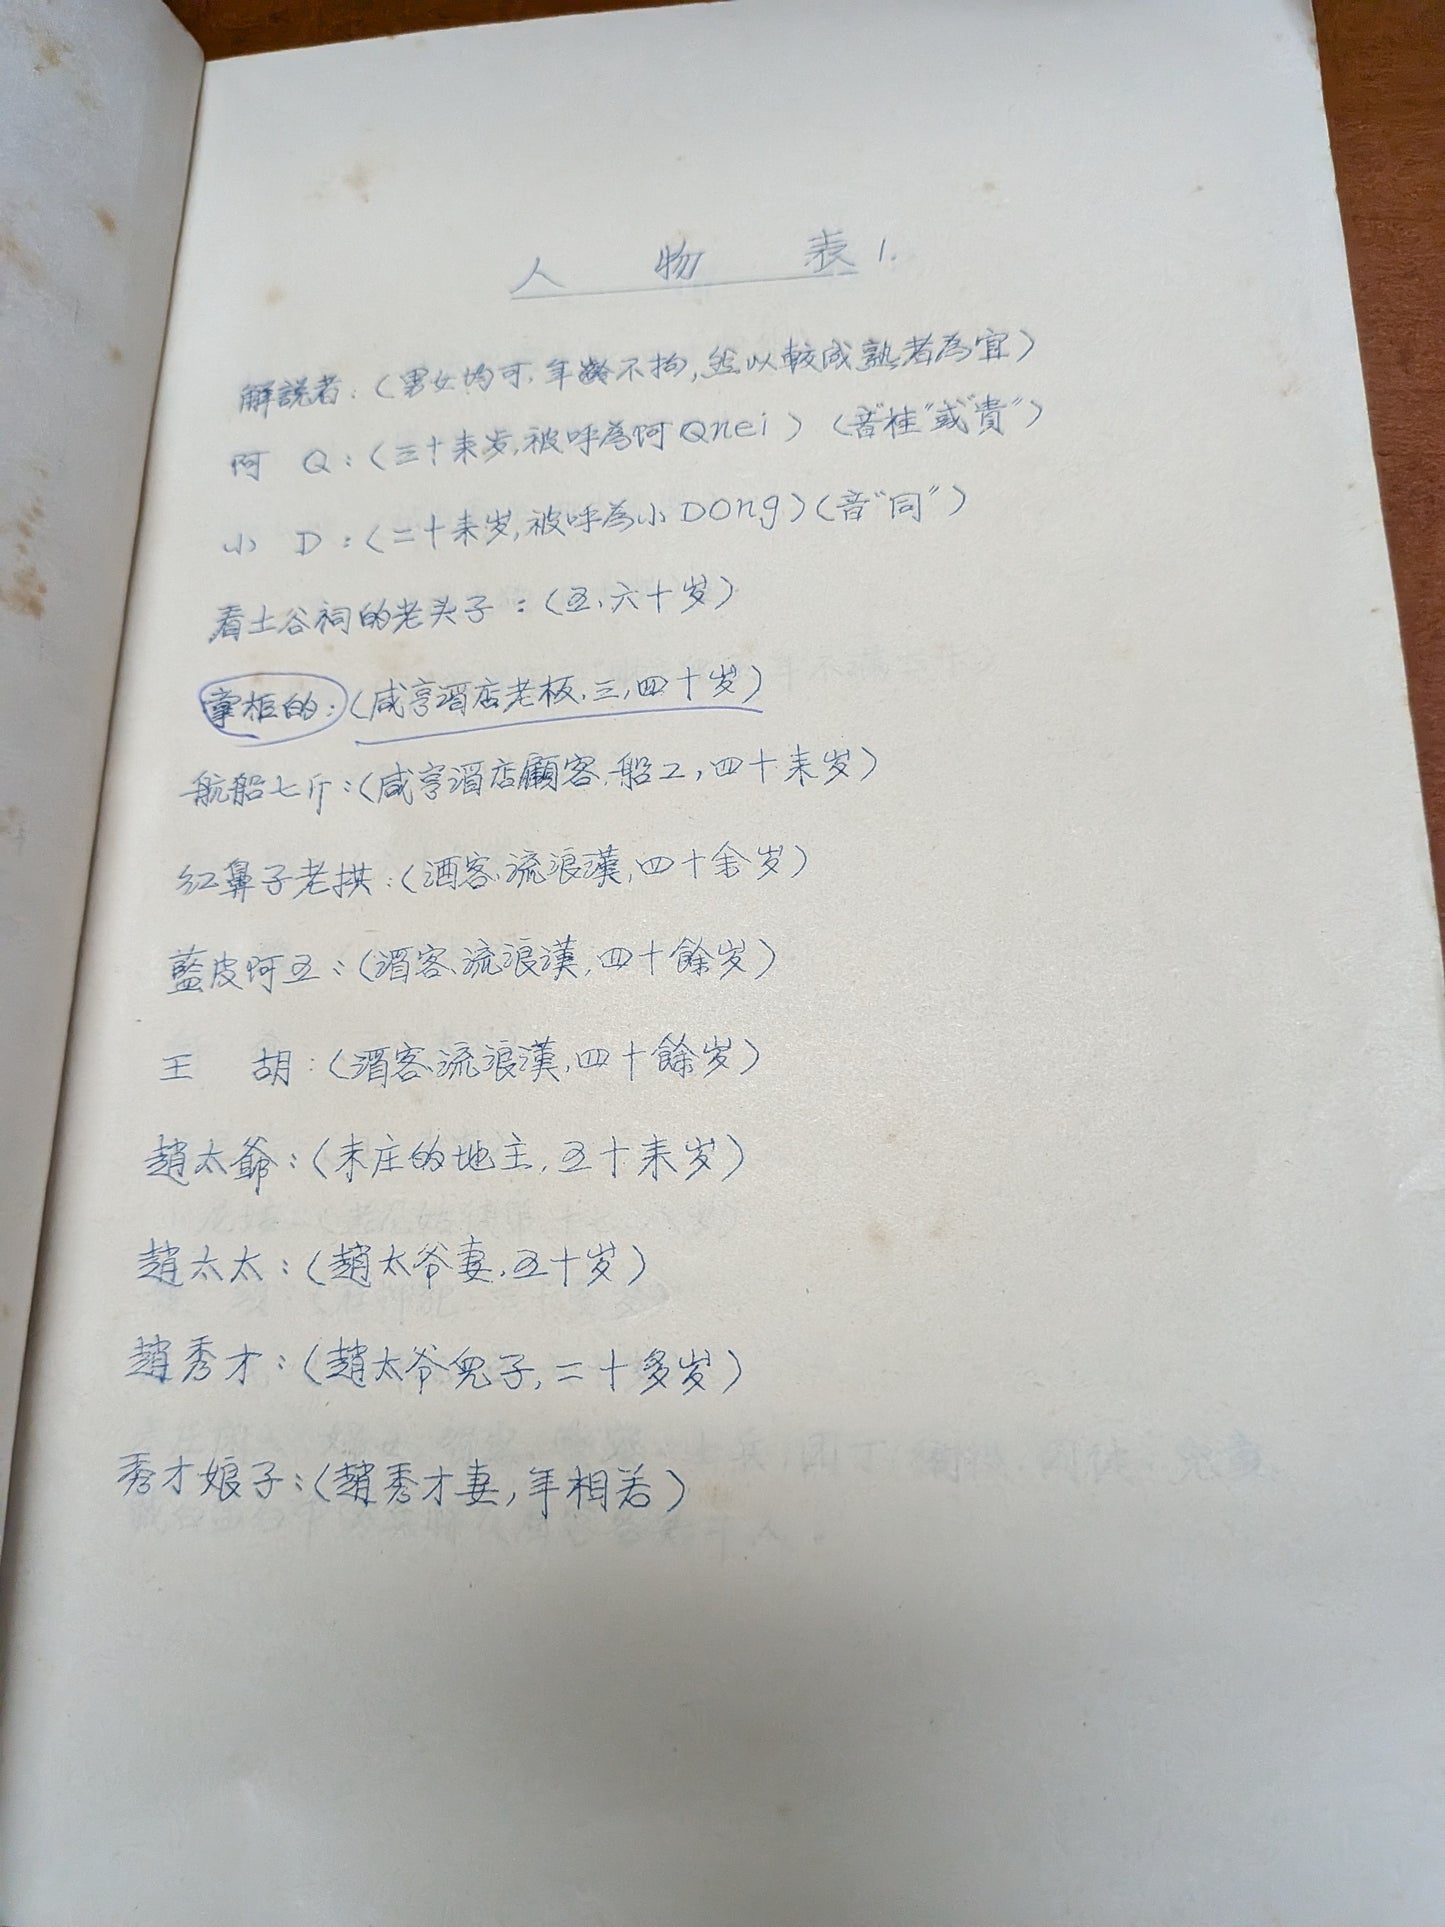 人物表1.
解説者:(男女均可.年齡不拘,然以較成熟者為宜)
阿Q:(三十来岁,被呼為阿Qnei)(音"桂"或"貴")
小D:(二十来岁,被呼為小Dong)(音"同")
看土谷祠的老头子:(五、六十岁)
掌柜的:(咸亨酒店老板.三,四十岁)
航船七斤:(咸亨酒店顧客,船工,四十来岁)
红鼻子老拱:(酒客、流浪漢,四十余岁)
藍皮阿五:(酒客、流浪漢,四十餘岁)
王胡:(酒客、流浪漢,四十餘岁)
趙太爺:(未庄的地主,五十来岁)
趙太太:(趙太爷妻.五十岁)
趙秀才:(趙太爷兒子,二十多岁)
秀才娘子:(趙秀才妻,年相若)